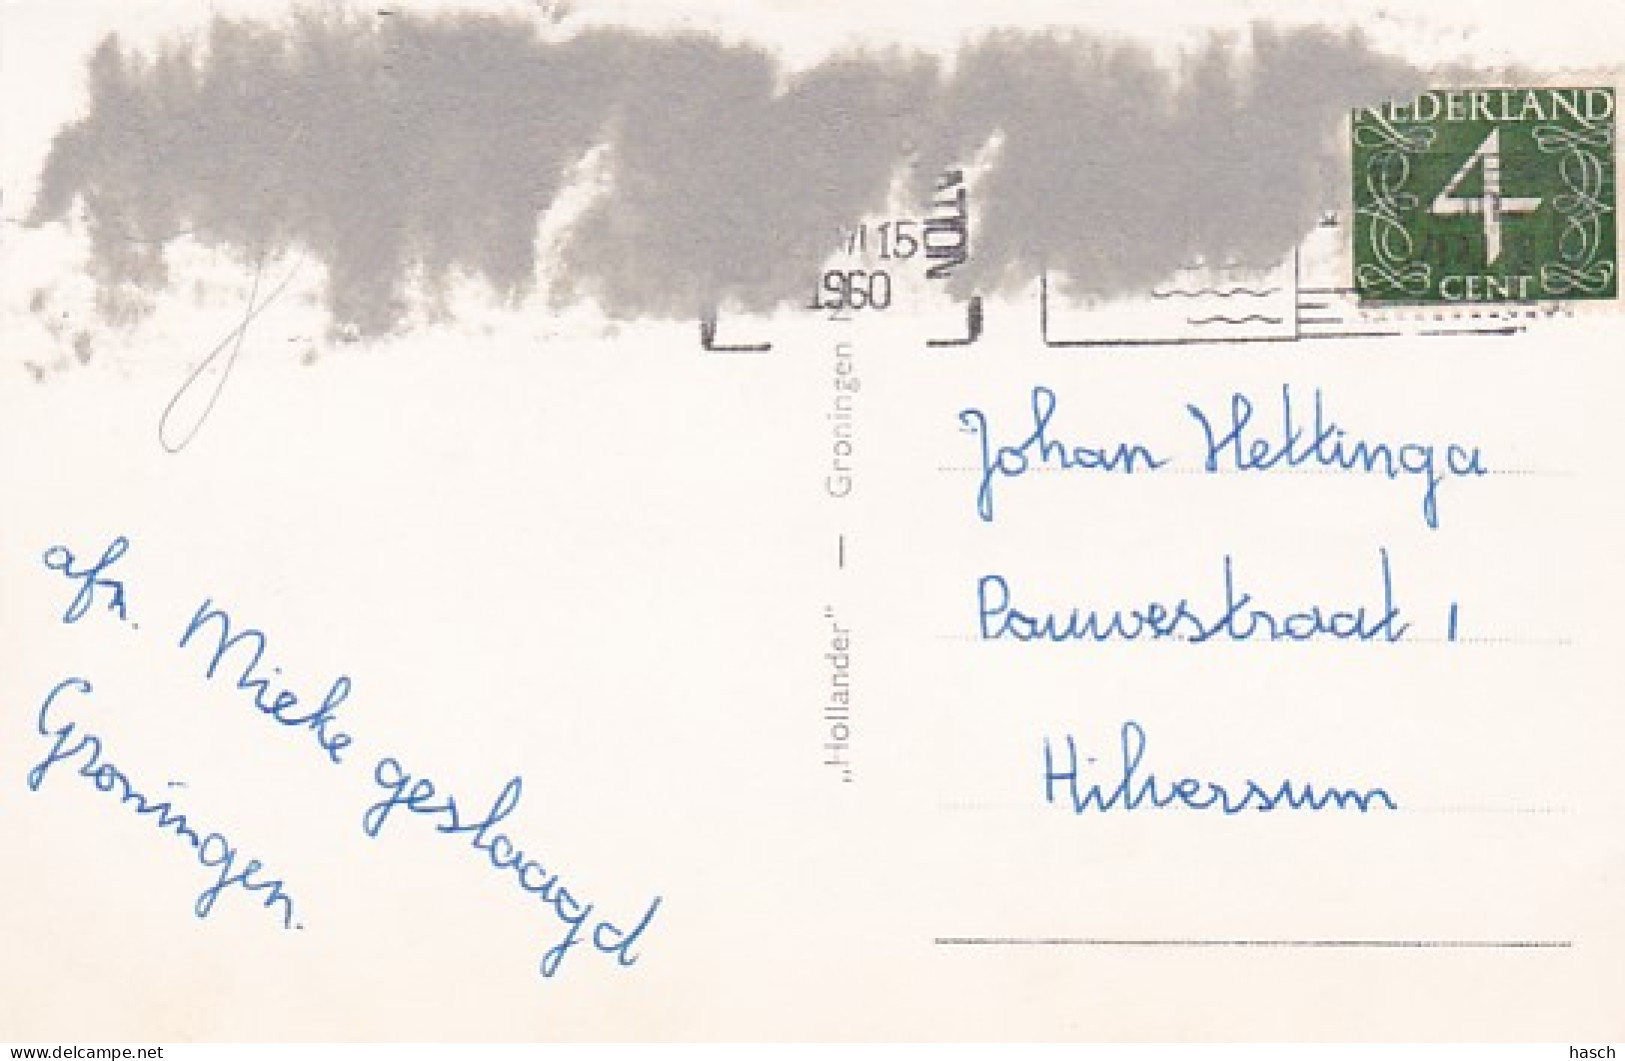 NEDERLAND
4
CENT
15
1960
„Hollander" — Groningen
Johan Hettinga
Pauwestraat 1
Hilversum
afz. Mieke geslaagd
Groningen.
hasch